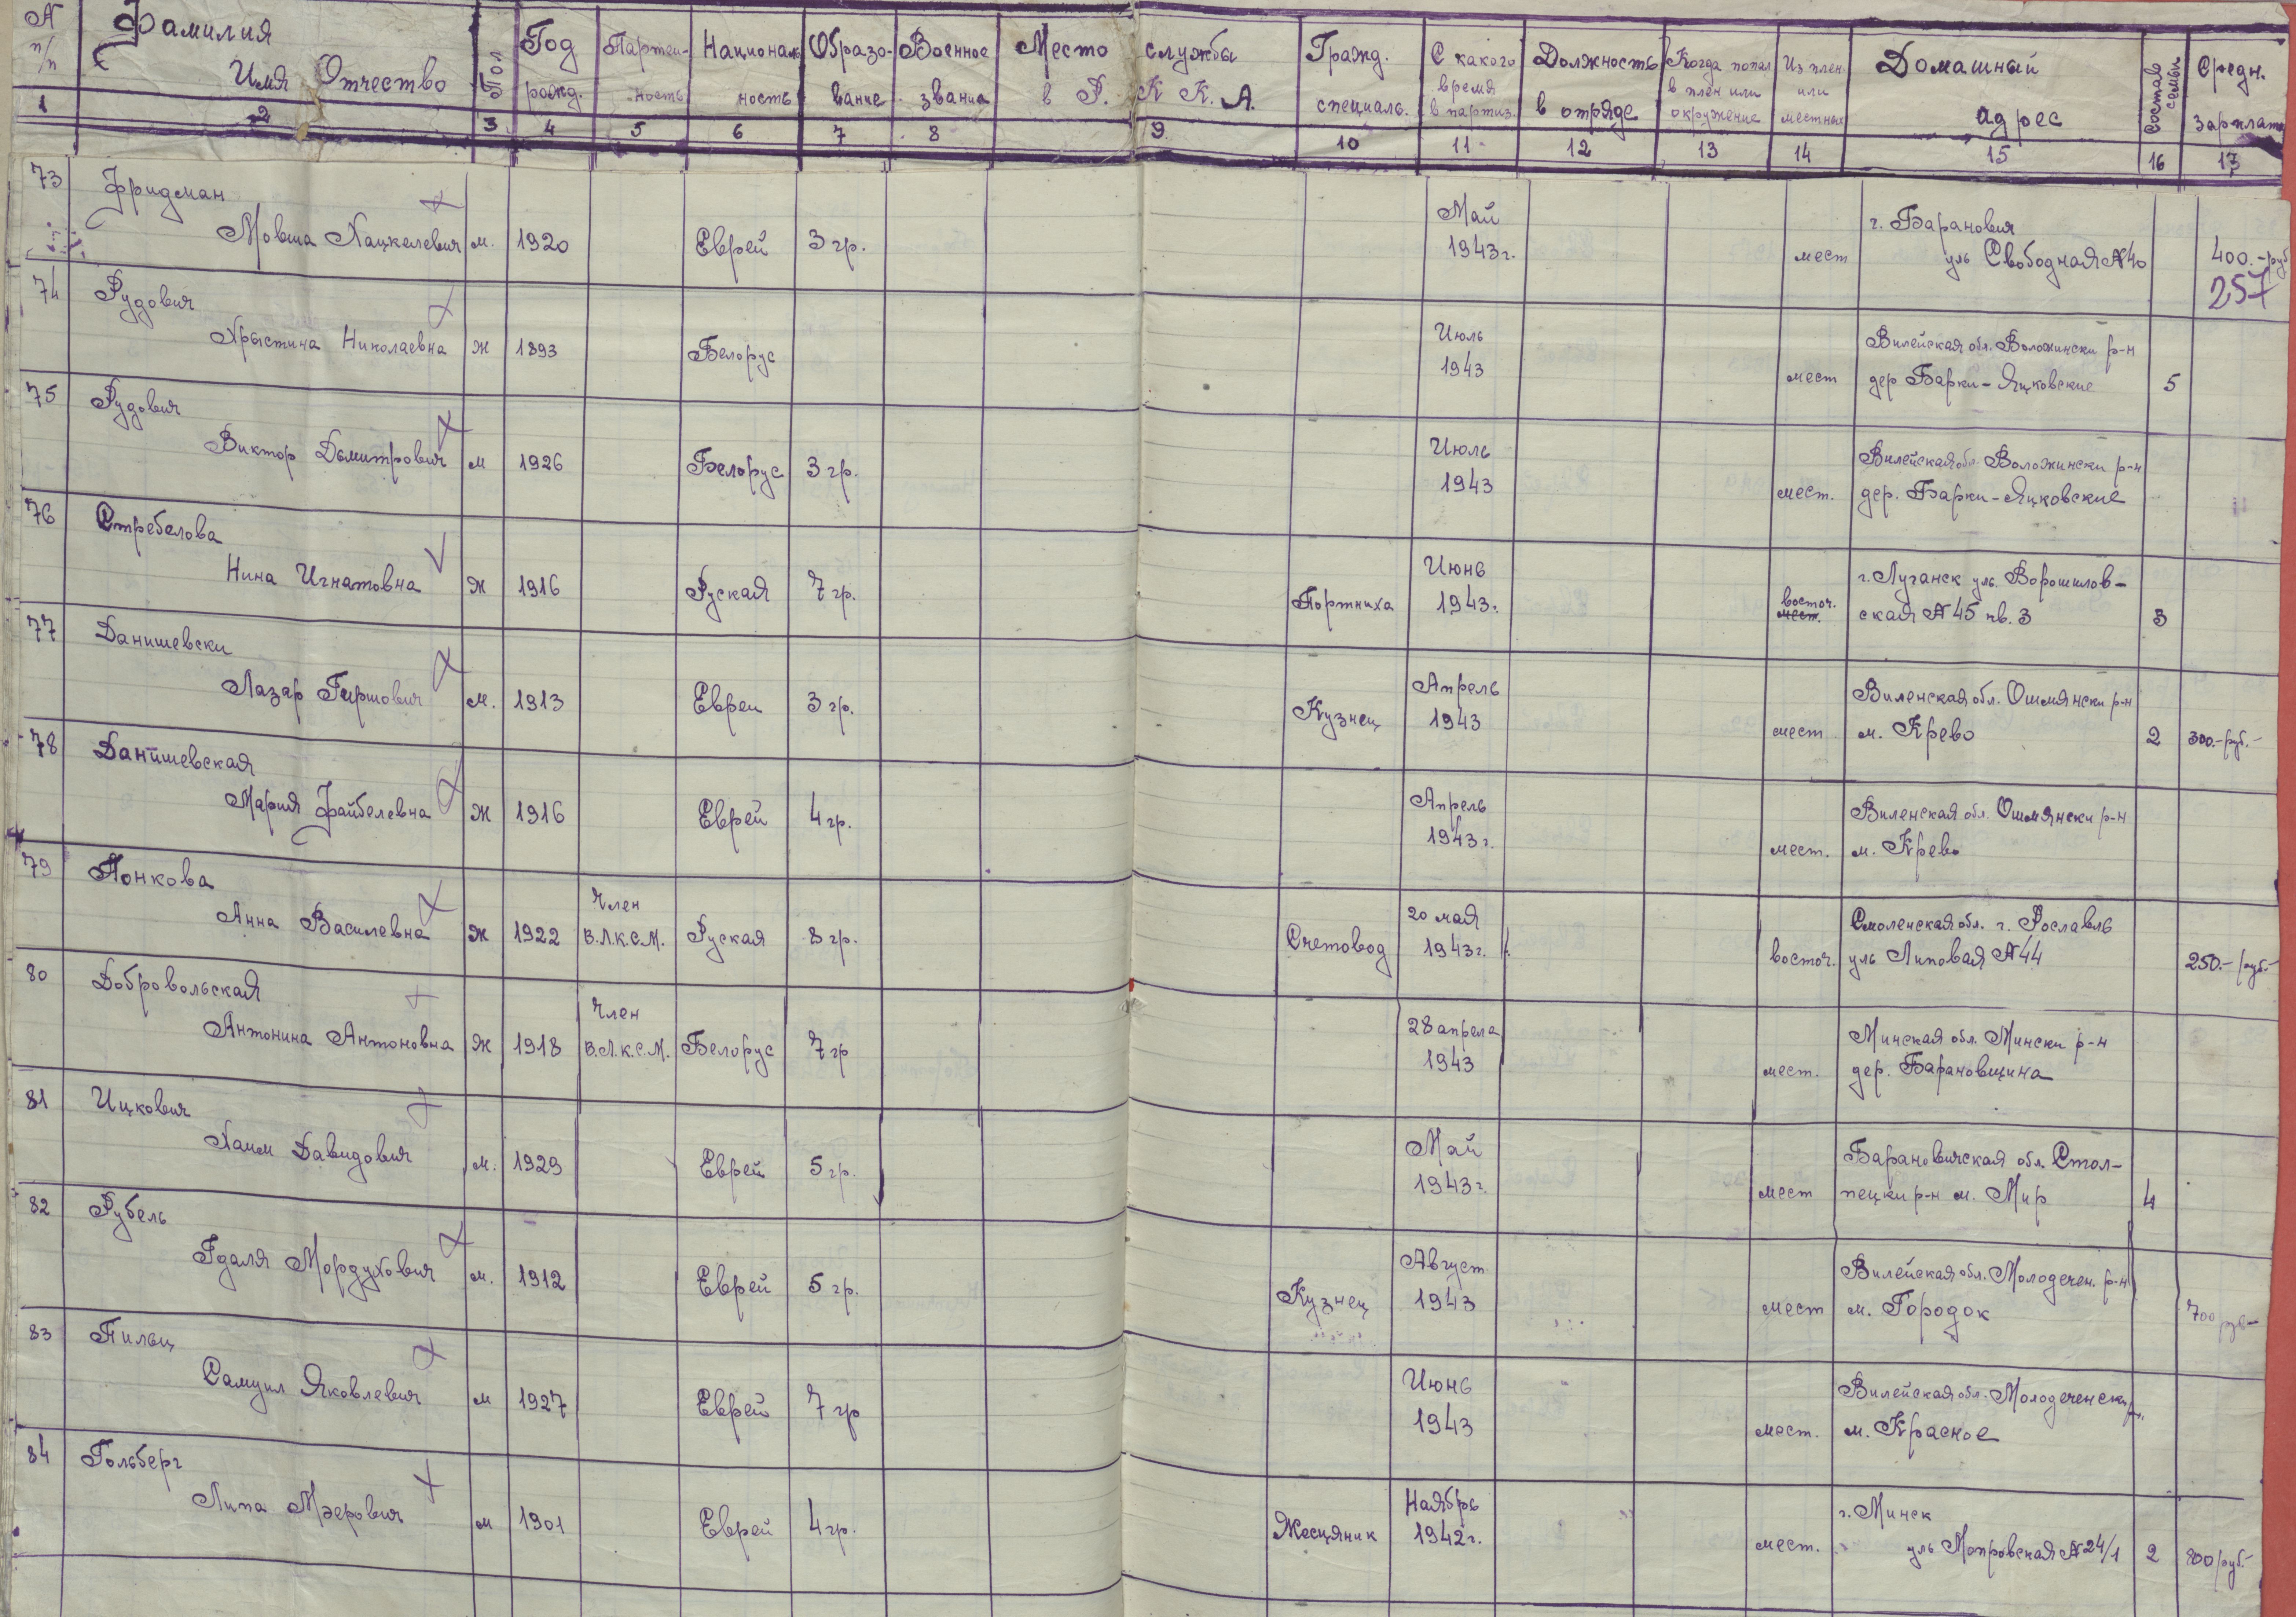 № п/п Фамилия Имя Отчество Пол Год рожд. Партей-ность Националь ность Образо-вание Военное звания Место службы в Р. К К. А. Гражд. специаль. С какого время в партиз. Должность в отряде Когда попал в плен или окружение Из плен. или местных Домашный адрес Состав семьи Средн. зарплата
1 2 3 4 5 6 7 8 9 10 11 12 13 14 15 16 17
73 Фридман Май г. Баранович
Мовша Хацкелевич м. 1920 Еврей 3 гр. 1943 г. мест уль Свободная № 40 400.-руб
257
74 Рудович Июль Вилейская обл. Воложински р-н
Хрыстина Николаевна Ж 1893 Белорус 1943 мест дер Барки-Яцковские 5
75 Рудович Июль Вилейская обл. Воложински р-н
Виктор Дымитрович м 1926 Белорус 3 гр. 1943 мест. дер. Барки-Яцковские
76 Стребелова Июнь г. Луганск уль. Ворошилов-
Нина Игнатовна Ж 1916 Руская 7 гр. Портниха 1943. восточ. мест. ская № 45 кв. 3 3
77 Данишевски Апрель Виленская обл. Ошмянски р-н
Лазар Гиршович м. 1913 Евреи 3 гр. Кузнец 1943 мест м. Крево 2 300.-руб.-
78 Данишевская Апрель Виленская обл. Ошмянски р-н
Мария Файбелевна Ж 1916 Еврей 4 гр. 1943 г. мест. м. Крево
79 Понкова Член 20 мая Смоленская обл. г. Рославль
Анна Василевна Ж 1922 В.Л.К.С.М. Руская 8 гр. Счетовод 1943 г. восточ. уль Липовая № 44 250.-руб.-
80 Добровольская Член 28 апрела Минская обл. Мински р-н
Антонина Антоновна Ж 1918 В.Л.К.С.М. Белорус 7 гр 1943 мест. дер. Барановщина
81 Ицкович Май Барановичская обл. Стол-
Хаим Давидович м. 1929 Еврей 5 гр. 1943 г. мест пецки р-н м. Мир 4
82 Рубель Август Вилейская обл. Молодечен. р-н
Гдаля Мордухович м. 1912 Еврей 5 гр. Кузнец 1943 мест м. Городок 700 руб-
83 Пильц Июнь Вилейская обл. Молодеченски
Самуил Яковлевич м 1927 Еврей 7 гр 1943 мест. м. Красное
84 Гольберг Наябрь г. Минск
Липа Мэерович м 1901 Еврей 4 гр. Жесцяник 1942 г. мест. уль Мопровская № 24/1 2 800 руб.-